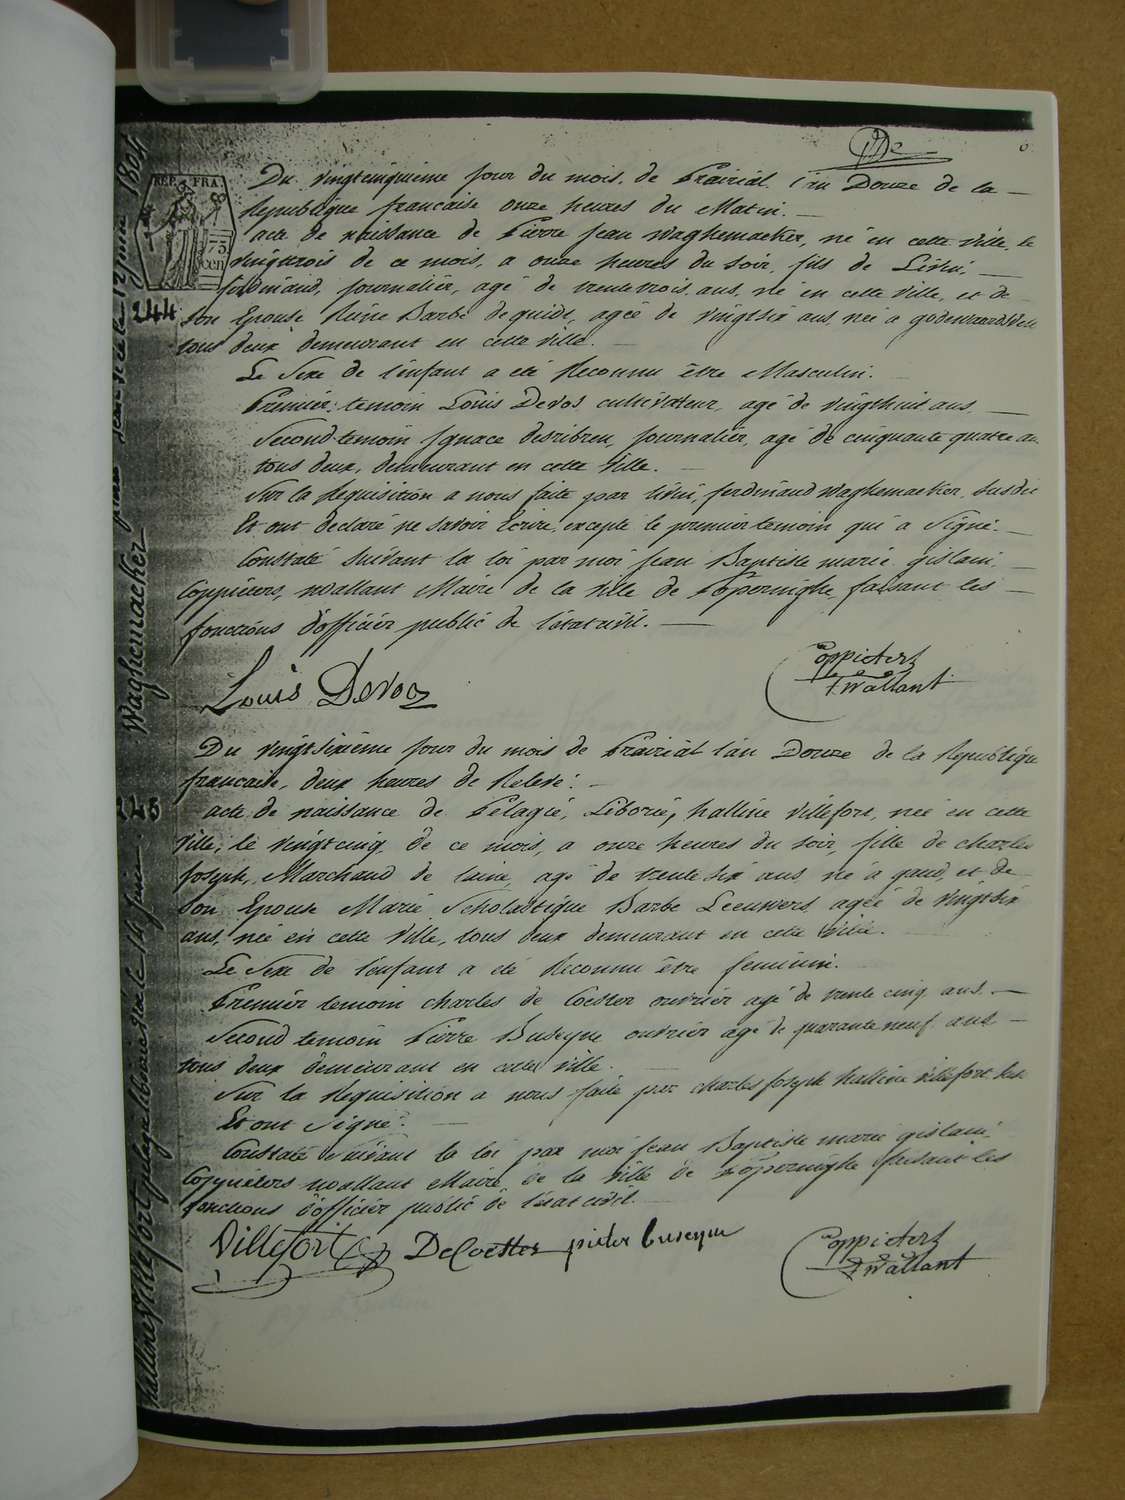 REP. FRA.
75
cen
Du vingtcinquième jour du mois de Prairial l'an Douze de la
Republique francaise onze heures du Matin.
acte de naissance de Pierre Jean Waghemacker, né en cette ville, le
vingttrois de ce mois, a onze heures du soir, fils de Livui,
ferdinand, journalier, agé de trente trois ans, né en cette ville, et de
244
Son Epouse Reine Barbe dequidt, agée de vingtsix ans née a godewaersvelde
tous deux demeurant en cette ville.
Le Sexe de l'enfant a été Reconnu être Masculin.
Premier temoin Louis Devos, cultivateur, agé de vingthuit ans
Second temoin Ignace journalier, agé de cinquante quatre an
tous deux, demeurant en cette Ville.
Sur la Requisition a nous faite par livui, ferdinand waghemacker, susdit
Et ont declaré ne savoir Ecrire, excepté le premier temoin qui a Signé.
Constaté suivant la loi par moi Jean Baptiste marie gislain,
Coppieters, wallant Maire de la ville de Poperinghe, faisant les
fonctions d'officier public de l'état civil.
Louis Devos
Coppieters
t'Wallant
Du vingtsixième jour du mois de Prairial l'an Douze de la Republique
francaise, deux heures de Relevé.
245
acte de naissance de Pelagie, Liborie, halline villefort, née en cette
ville, le vingtcinq de ce mois, a onze heures du soir, fille de charles
Joseph, Marchand de laine, agé de trente six ans, né a gand, et de
Son Epouse Marie Scholastique Barbe Leeuwers agée de vingtsix
ans, née en cette ville, tous deux demeurant en cette ville.
Le Sexe de l'enfant a été Reconnu être feminin.
Premier temoin charles de Coester ouvrier agé de trente cinq ans.
Second temoin Pierre Buseyne ouvrier agé de quarante neuf ans
tous deux demeurant en cette ville.
Sur la Requisition a nous faite par charles Joseph halline villefort
Et ont Signé.
Constaté Suivant la loi par moi Jean Baptiste marie gislain
Coppieters wallant Maire de la ville de Poperinghe faisant les
fonctions d'officier public de l'état civil.
Villefort DeCoester pieter buseyne
Coppieters
t'Wallant
Waghemacher pierre jean né le 12 juin 1804
halline Villefort pelagie liborie née le 14 juin